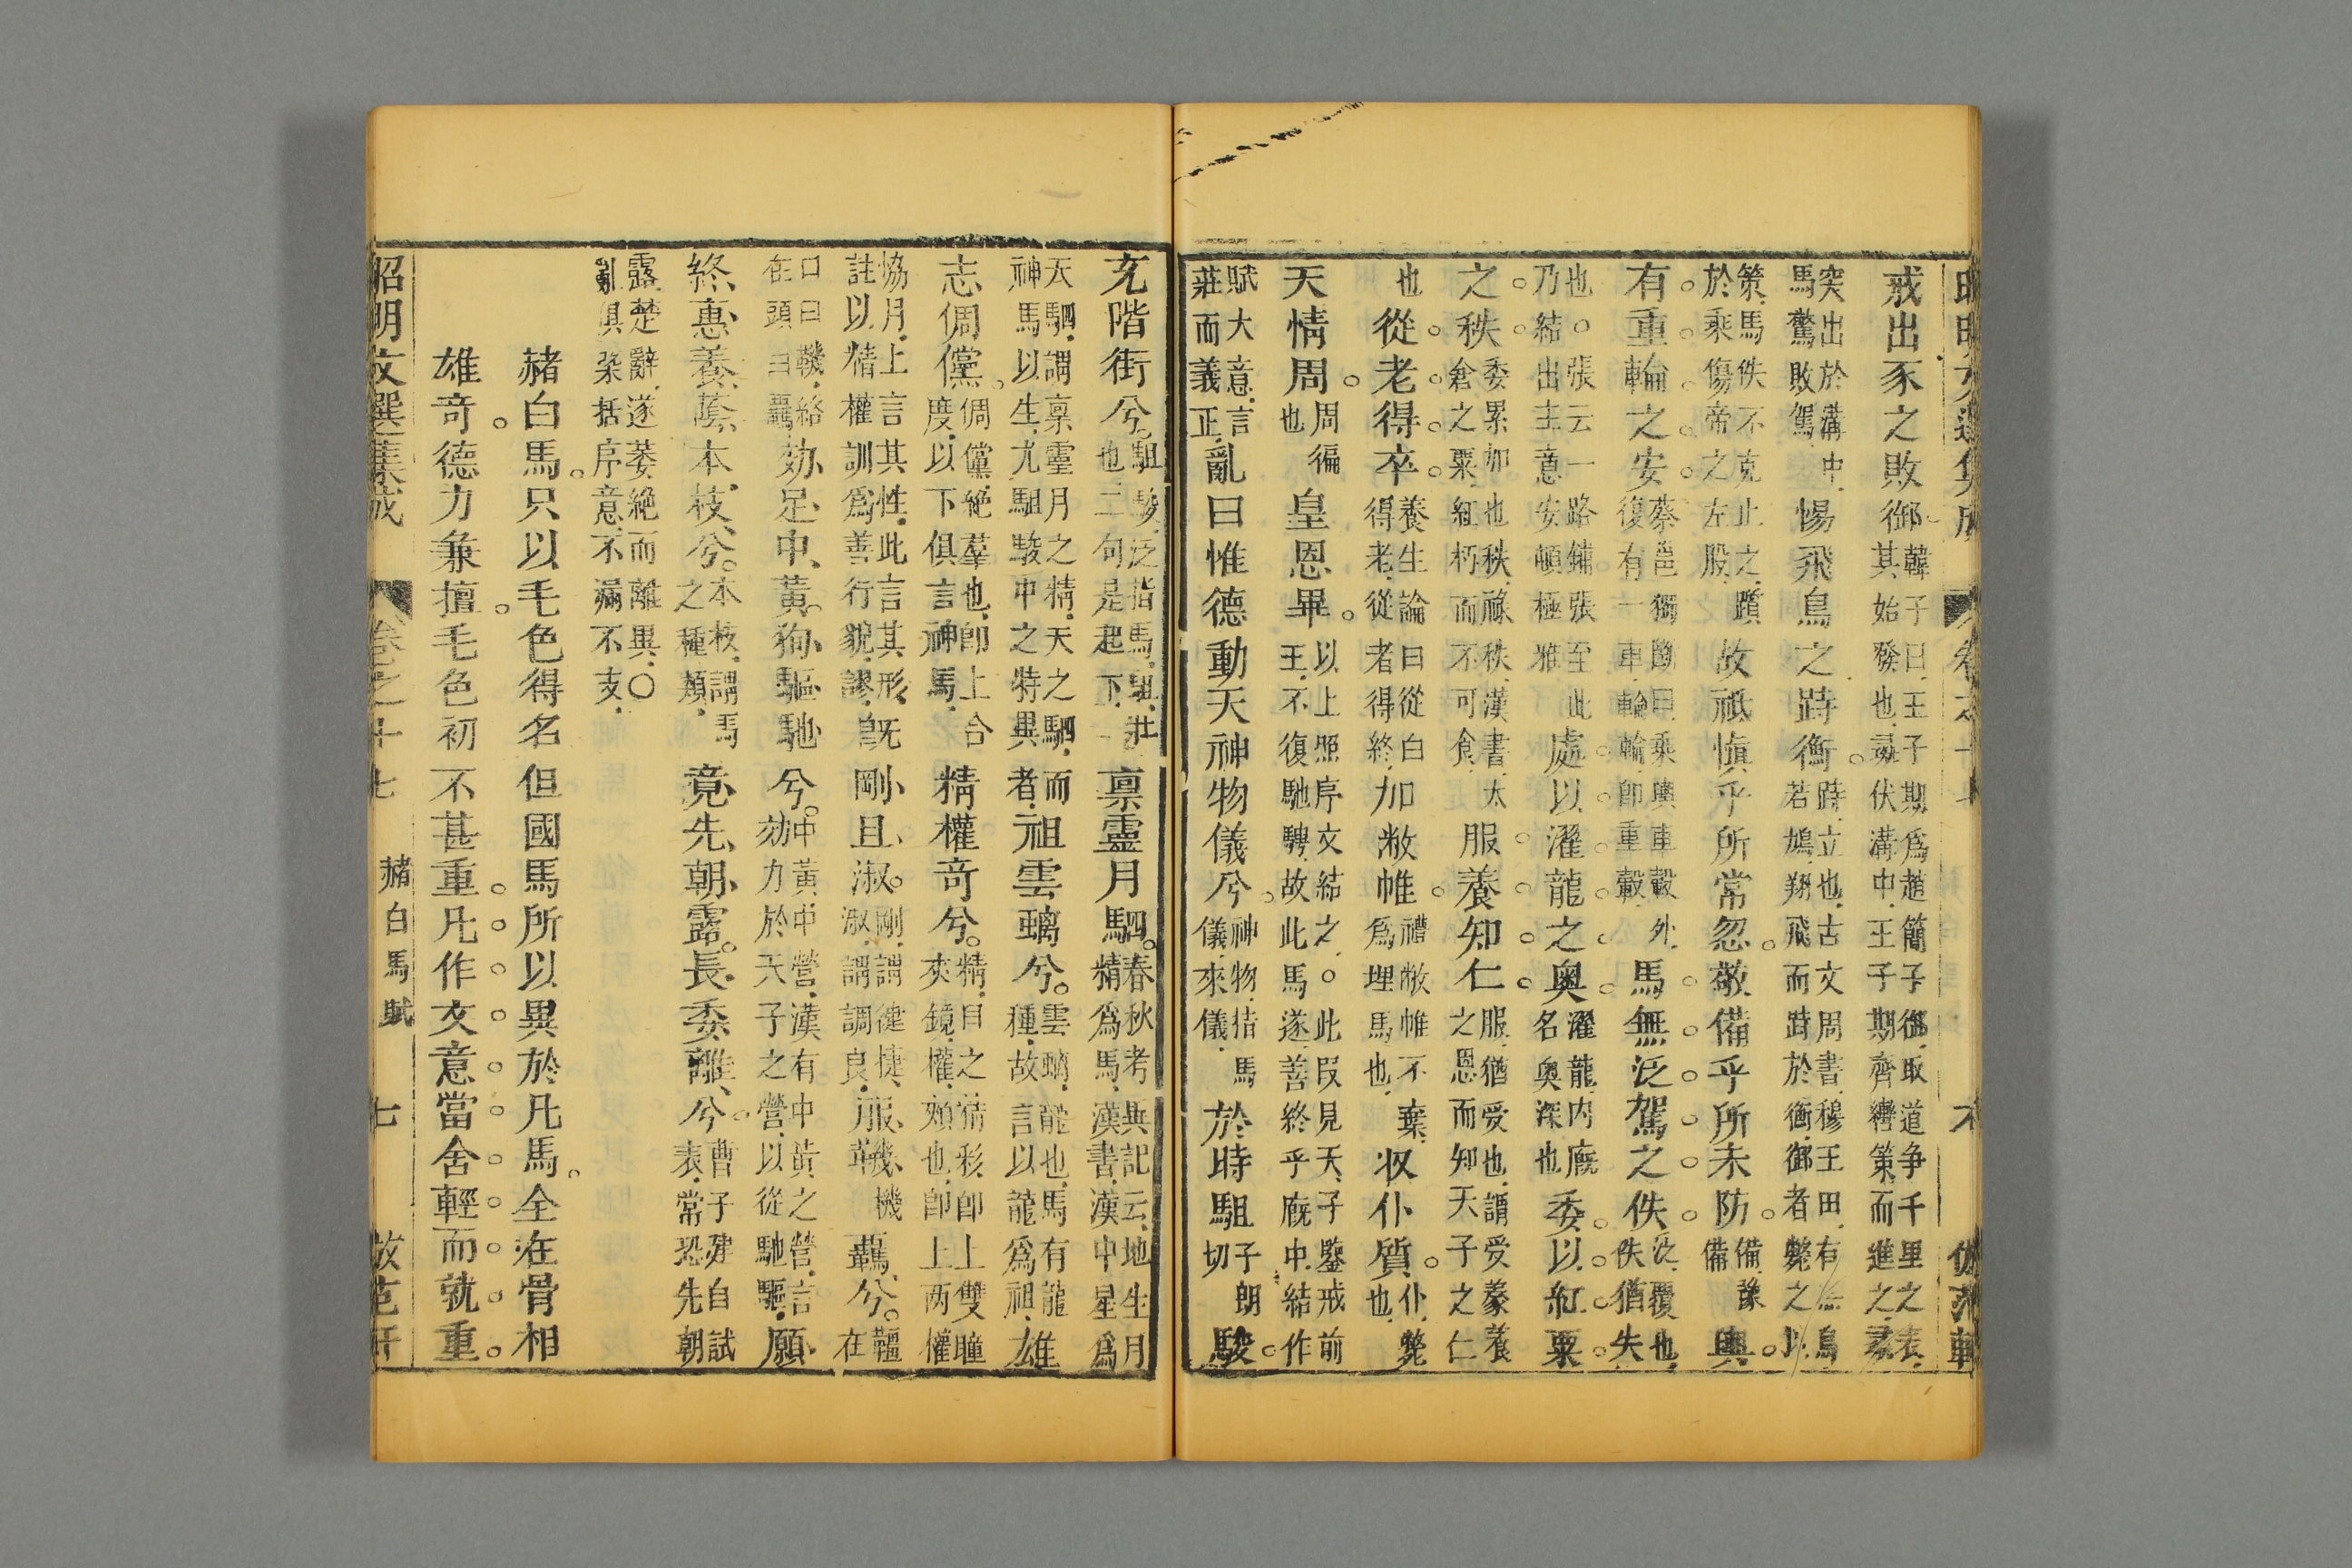 戒出豕之敗御韓子曰王子期爲趙簡子御取道爭千里之表其始發也彘伏溝中王子期齊轡策而進之彘
突出於溝中馬驚敗駕惕飛鳥之跱衡跱立也古文周書穆王田有黑鳥若鳩翔飛而跱於衡御者斃之以
策馬佚不克止之躓於乘傷帝之左股故祗慎乎所常忽敬備乎所未防備備豫輿
有重輪之安蔡邕獨斷曰乘輿車轂外復有一車輪輪卽重轂馬無泛駕之佚泛覆也佚猶失
也○張云一路鋪張至此乃結出主意安頓極雅處以濯龍之奧濯龍內廐名奧深也委以紅粟
之秩委累加也秩祿秩漢書太倉之粟紅朽而不可食服養知仁服猶受也謂受豢養之恩而知天子之仁
也從老得卒養生論曰從白得老從者得終加敝帷禮敝帷不棄爲埋馬也収仆質仆斃也
天情周周徧也皇恩畢以上照序文結之○此段見天子鑒戒前王不復馳騁故此馬遂善終乎廐中結作
賦大意言莊而義正亂曰惟德動天神物儀兮神物指馬儀來儀於時駔子朗切駿
充階街兮駔駿泛指馬駔壯也二句是起下稟靈月駟春秋考異記云地生月精爲馬漢書漢中星爲
天駟謂稟靈月之精天之駟而神馬以生尤駔駿中之特異者祖雲螭兮雲螭龍也馬有龍種故言以龍爲祖雄
志倜儻倜儻絶羣也卽上合度以下俱言神馬精權奇兮精目之精彩卽上雙瞳夾鏡權頰也卽上兩權
協月上言其性此言其形旣註以精權訓爲善行貌謬剛且淑剛謂健捷淑謂調良服機革機轡兮韁在
口曰鞿絡在頭曰羈效足中黃殉驅馳兮中黃中營漢有中黃之營言效力於天子之營以從馳驅願
終惠養蔭本枝兮本枝謂馬之種類竟先朝露長委離兮曹子建自試表常恐先朝
露楚辭遂萎絶而離異○亂俱檃括序意不漏不支
赭白馬只以毛色得名但國馬所以異於凡馬全在骨相
雄奇德力兼擅毛色初不甚重凡作文意當舍輕而就重
昭明文選集成 卷之十七 赭白馬賦 七